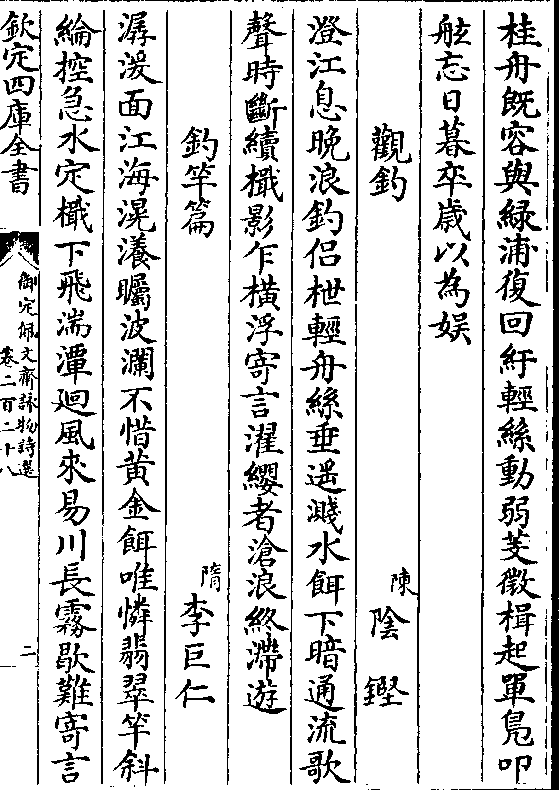 桂舟既容與綠浦復回紆輕絲動弱芰微楫起單鳧叩
舷忘日暮卒歲以為娱
觀釣
陳陰鏗
澄江息晚浪釣侣枻輕舟絲垂遥濺水餌下暗通流歌
聲時斷續檝影乍横浮寄言濯纓者滄浪終滯遊
釣竿篇
隋李巨仁
潺湲面江海滉瀁矚波瀾不惜黄金餌唯憐翡翠竿斜
綸控急水定檝下飛湍潭廻風來易川長霧歇難寄言
欽定四庫全書
御定佩文齋詠物詩選
卷二百二十八
二